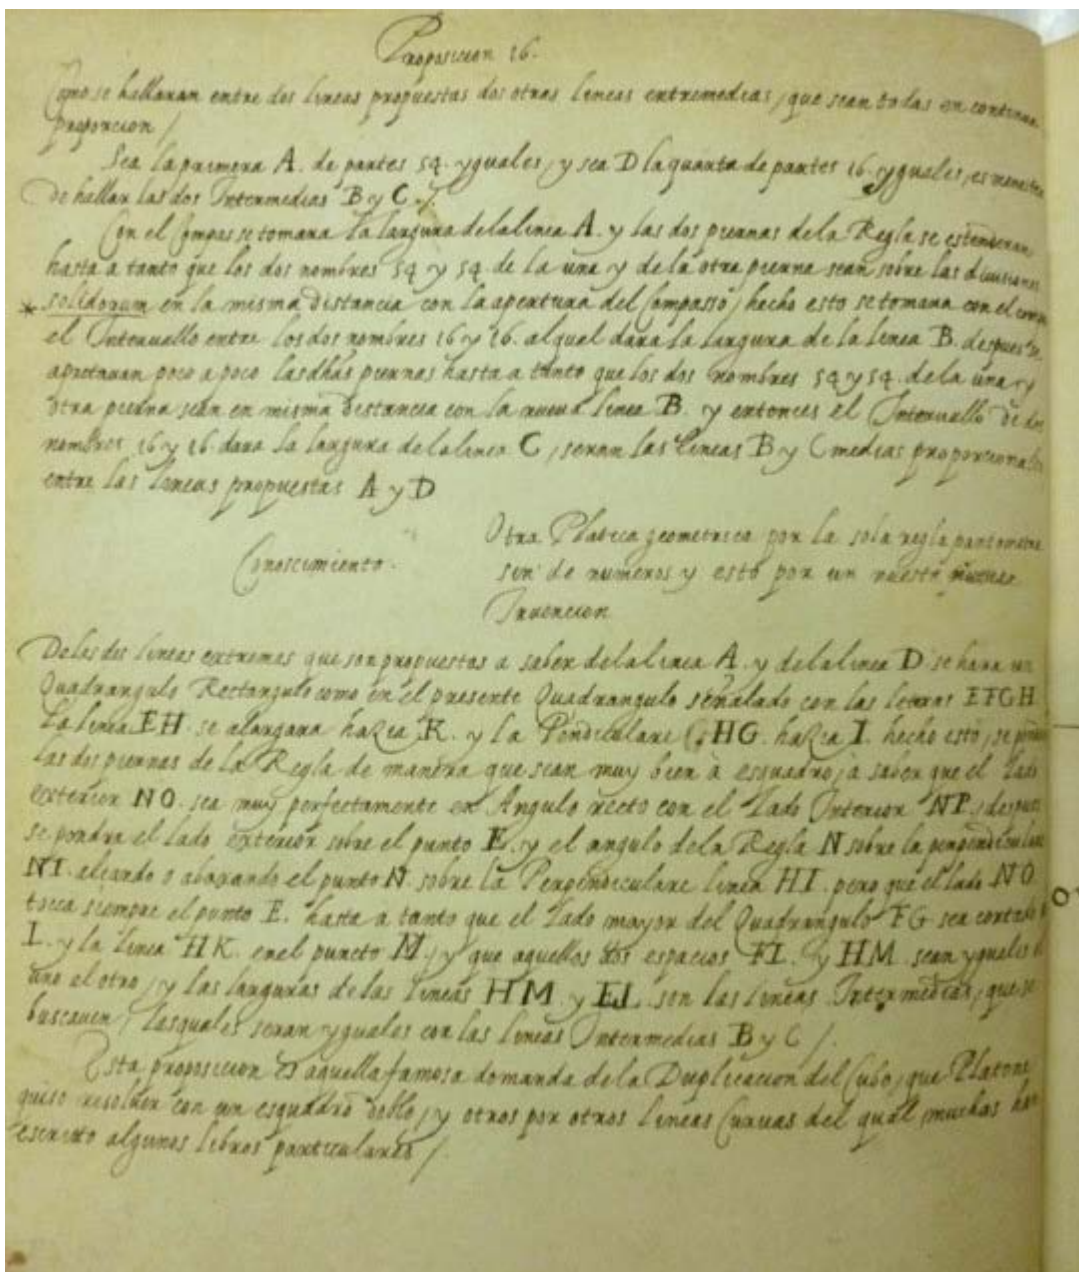 Proposicion 16.
Como se hallaran entre dos lineas propuestas dos otras lineas entremedias, que sean todas en continua
proporcion /
Sea la primera A. de partes 54. yguales, y sea D la quarta de partes 16. yguales, es menester
de hallar las dos Intermedias B y C. /.
Con el Compas se tomara la largura de la linea A. y las dos piernas de la Regla se estenderan
hasta a tanto que los dos nombres 54 y 54 de la una y de la otra pierna sean sobre las diuisiones
* solidorum en la misma distancia con la apertura del Compasso, hecho esto se tomara con el compas
el Interuallo entre los dos nombres 16 y 16. al qual dara la largura de la linea B. despues se
apretaran poco a poco las dhas piernas hasta a tanto que los dos nombres 54 y 54. de la una y
otra pierna sean en misma distancia con la nueua linea B. y entonces el Interuallo de dos
nombres 16 y 16 dara la largura de la linea C, seran las lineas B y C medias proporcionales
entre las lineas propuestas A y D
Conoscimiento.
Otra Platica geometrica por la sola regla pantometra
sin de numeros y esto por un nuestra
Inuencion
De las dos lineas extremas que son propuestas a saber de la linea A. y de la linea D se hara un
Quadrangulo Rectangulo como en el presente Quadrangulo señalado con las letras EFGH.
La linea EH. se alargara hazia K. y la Pendiculare HG. hazia I. hecho esto, se
las dos piernas de la Regla de manera que sean muy bien à esquadro, a saber que el Lado
exterior NO. sea muy perfectamente en Angulo recto con el Lado Interior NP, despues
se pondra el lado exterior sobre el punto E. y el angulo de la Regla N sobre la perpendiculare
NI. alçando o abaxando el punto N. sobre la Perpendiculare linea HI. pero que el lado NO.
tocca siempre el punto E. hasta a tanto que el Lado mayor del Quadrangulo FG sea cortado
L. y la linea HK. en el puncto M, y que aquellos dos espacios FL. y HM. sean yguales el
uno el otro, y las larguras de las lineas HM. y EL son las lineas Intermedias, que se
buscauen / lasquales seran yguales con las lineas Intermedias B y C /.
Esta proposicion es aquella famosa domanda de la Duplicacion del Cubo, que Platone
quiso resoluer con un esquadro doblo, y otros por otros lineas Curuas del qual, muchos han
escritto algunos libros particulares /.